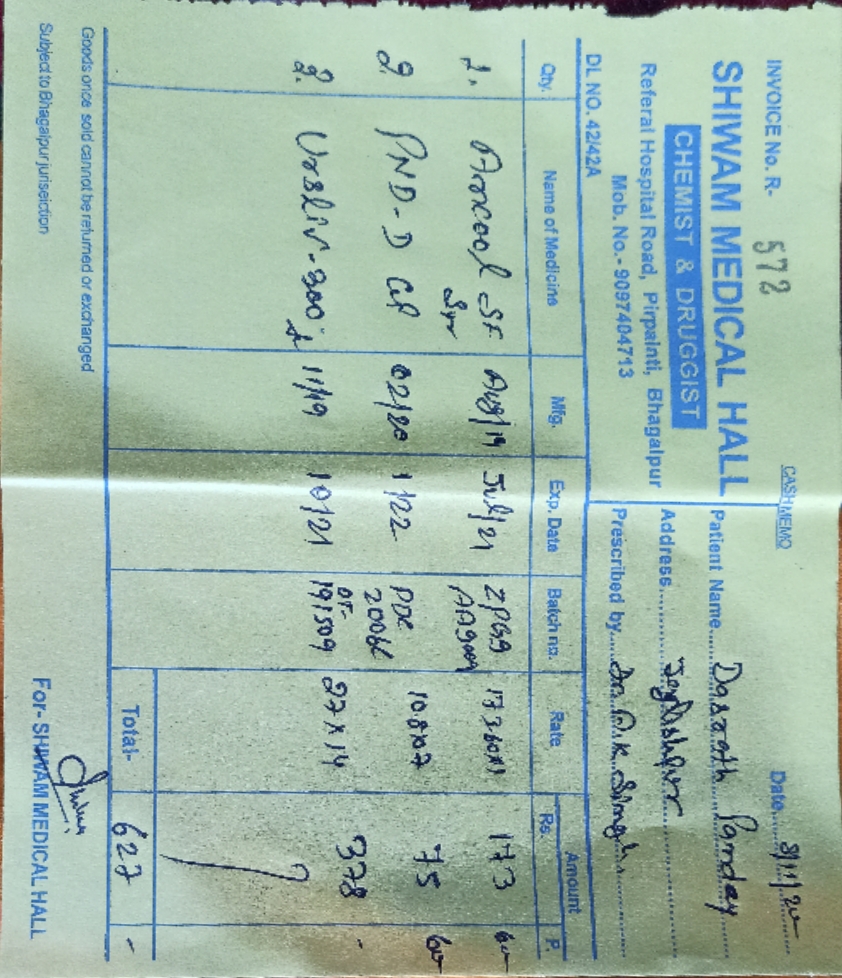 INVOICE No. R- 572
CASH MEMO
Date 8/11/20
SHIWAM MEDICAL HALL
CHEMIST & DRUGGIST
Referal Hospital Road, Pirpainti, Bhagalpur
Mob. No.- 9097404713
DL NO. 42/42A
Patient Name Dasrath Panday
Address
Prescribed by Dr. A.K. Singh
Qty. Name of Medicine Mfg. Exp. Date Batch no. Rate Amount
Rs. P.
1. SF Syr Aug/19 Jul/21 173.60x1 173 60
2. PND-D Cap 02/20 1/22 10.8x7 75 60
3. Ursliv-300 11/19 10/21 191509 27x14 378 -
Total- 627 -
Goods once sold cannot be returned or exchanged
Subject to Bhagalpur juriseiction
For- SHIWAM MEDICAL HALL